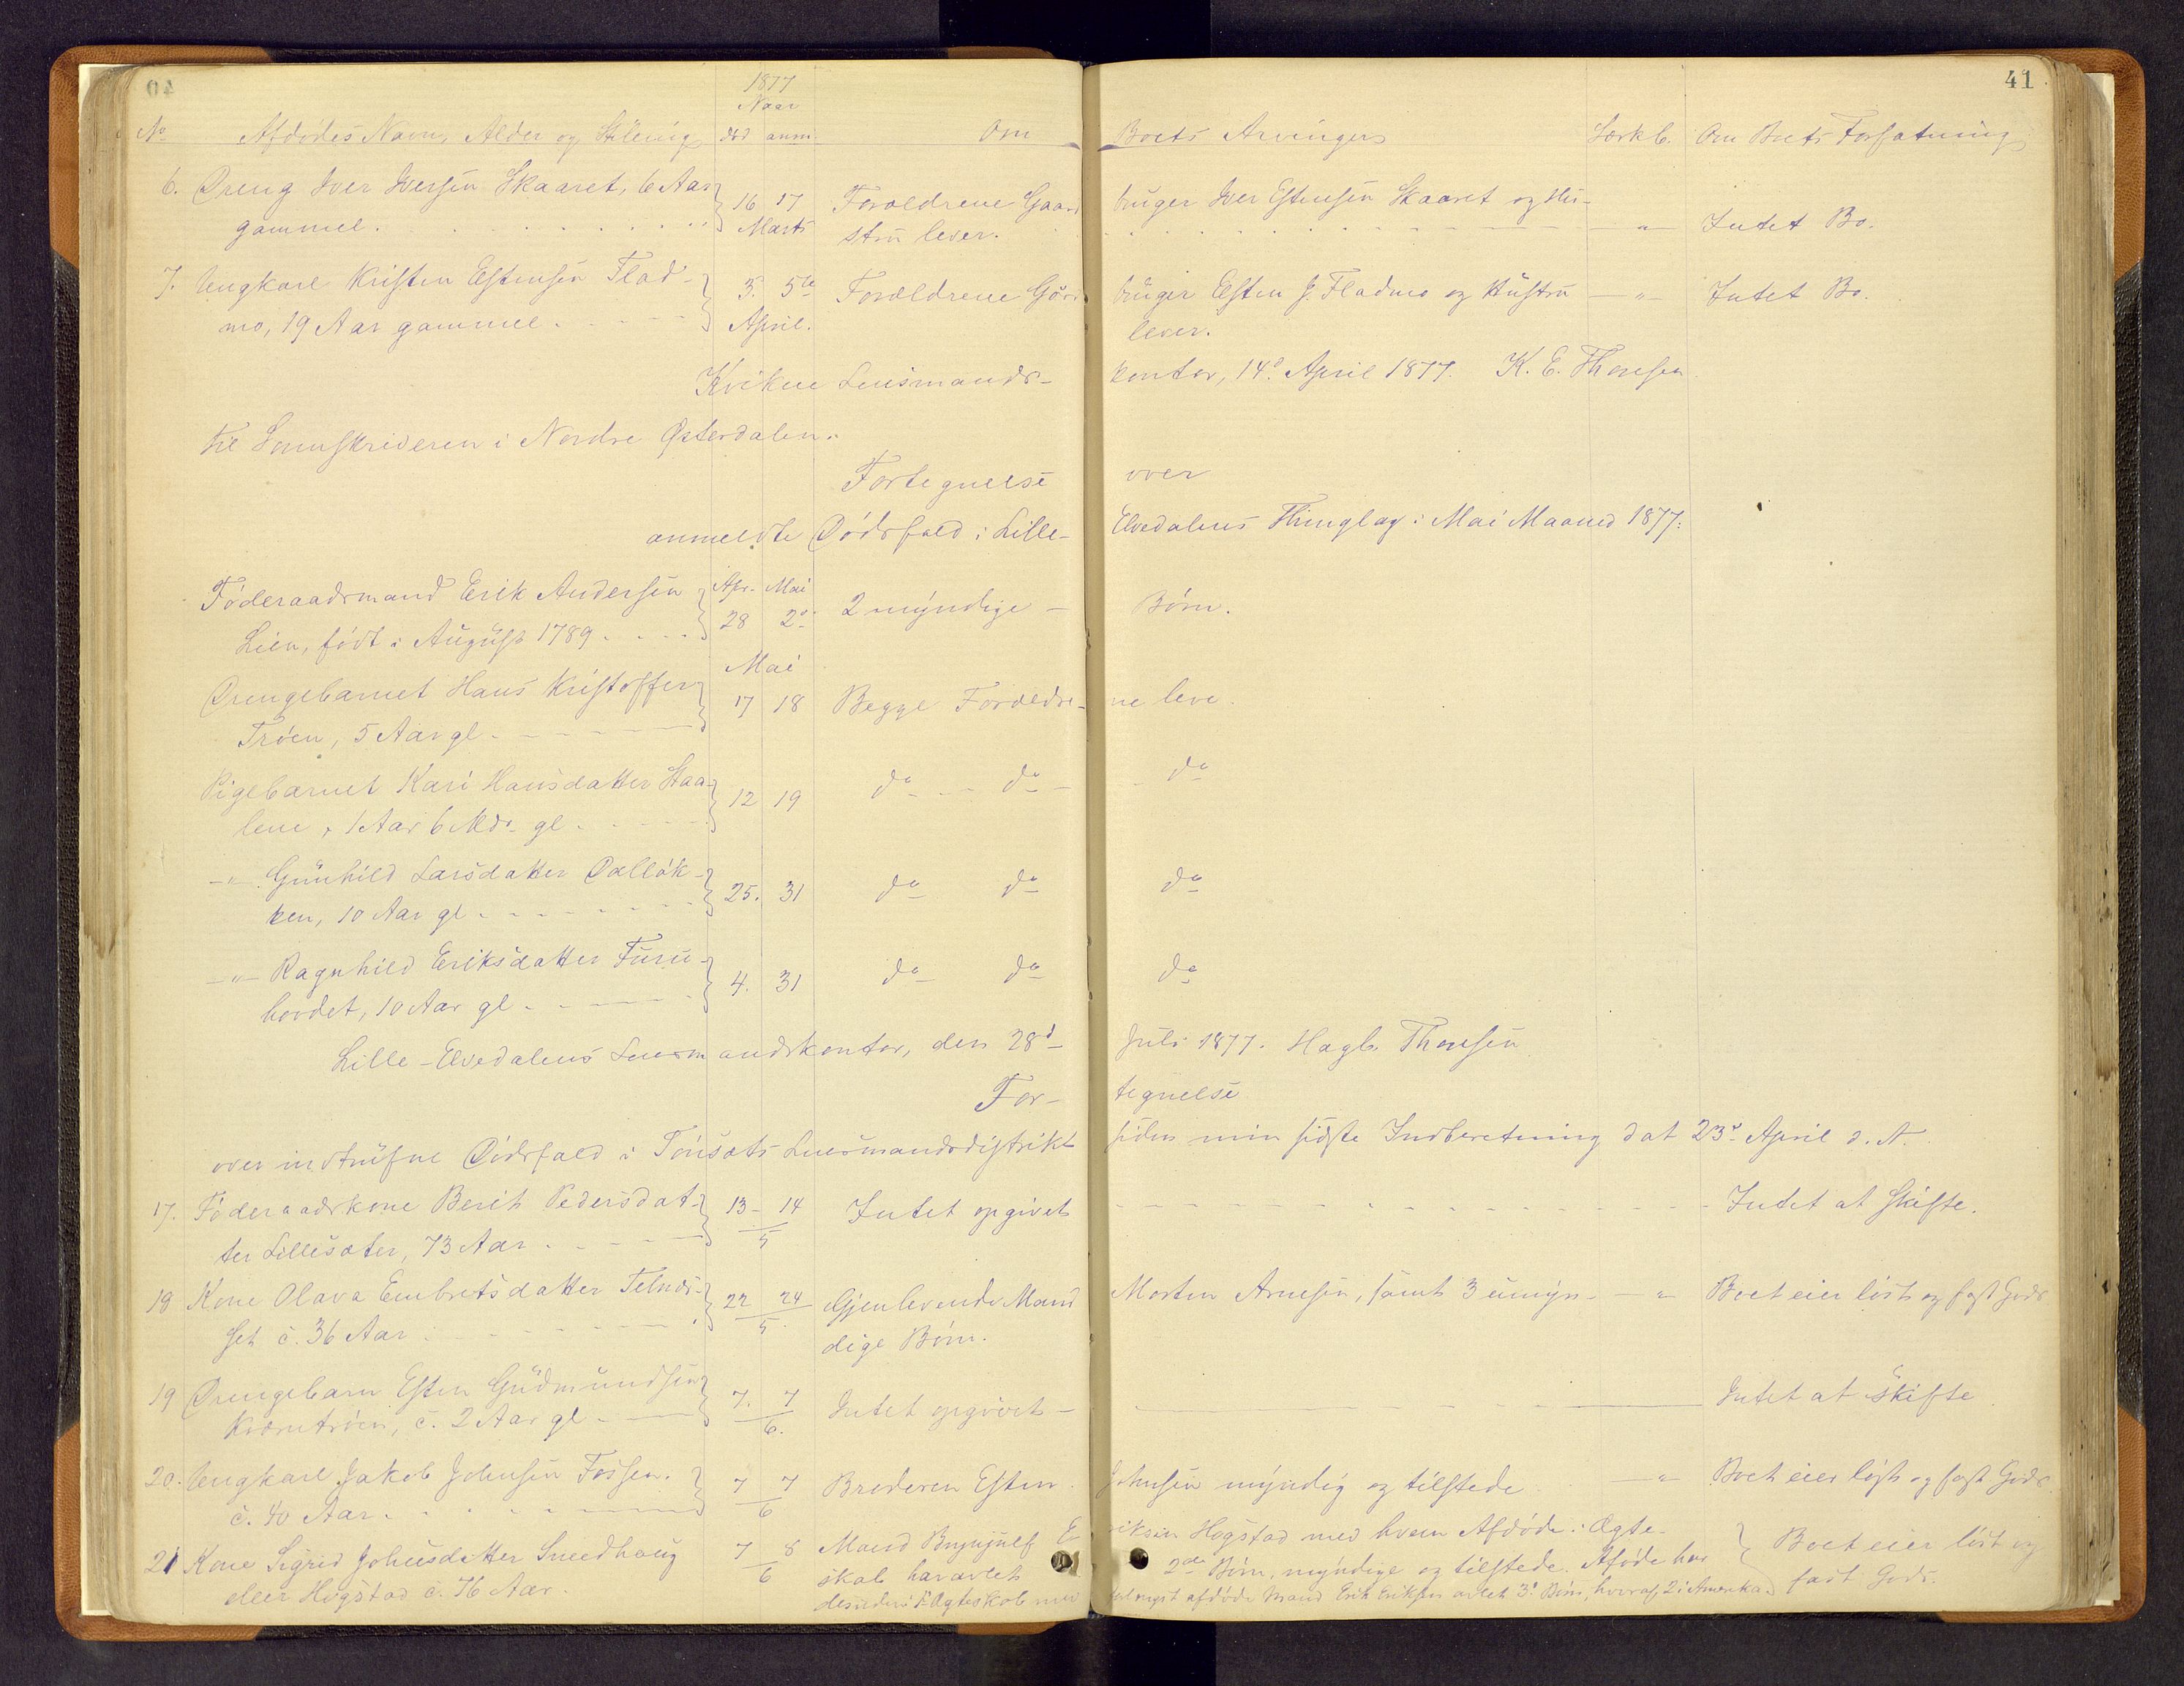 41
1877
Naar
No Afdødes Navn, Alder og Stilling død anm. Om Boets Arvinger Særkb. Om Boets Forfatning
6. Dreng Iver Iversen Skaaret, 6 Aar 16 17 Forældrene Gaard bruger Iver Estensen Skaaret og Hu-
gammel. Marts stru lever. — " — Intet Bo.
7. Ungkarl Kristen Estensen Flad- 3. 5te Forældrene Gård bruger Esten J. Fladmo og Hustru — " — Intet Bo.
mo, 19 Aar gammel. April. lever.
Kvikne Lensmands- kontor, 14d April 1877. K. E. Thoresen
til Sorenskriveren i Nordre Østerdalen.
Fortegnelse over
anmeldte Dødsfald i Lille- Elvedalens Thinglag i Mai Maaned 1877:
Føderaadsmand Erik Andersen Apr. Mai
Lien, født i August 1789 28 2d 2 myndige - Børn.
Mai
Drengebarnet Hans Kristoffer 17 18 Begge Forældre- ne leve.
Trøen, 5 Aar gl.
Pigebarnet Kari Hansdatter Staa- 12 19 do do do
lene, 1 Aar 6 Mdr gl.
— " — Gunhild Larsdatter Dalløk- 25. 31 do do do
ken, 10 Aar gl.
— " — Ragnhild Eriksdatter Furu- 4. 31 do do do
hovdet, 10 Aar gl.
Lille-Elvedalens Lensmandskontor, den 28d Juli 1877. Hagb. Thoresen
For- tegnelse
over indtrufne Dødsfald i Tønsæts Lensmandsdistrikt siden min sidste Indberetning dat 23d April d. A.
17. Føderaadskone Berit Pedersdat- 13 - 14 Intet opgivet Intet at skifte.
ter Lillesæter, 73 Aar 5
18 Kone Olava Embretsdatter Telnes- 22 24 Gjenlevende Mand Morten Arnesen, samt 3 umyn- — " Boet eier løst og fast Gods
set c. 36 Aar 5. dige Børn.
19 Drengebarn Esten Gudmundsen 7. 7 Intet opgivet Intet at skifte
Kværntrøen, c. 2 Aar gl 6.
20. Ungkarl Jakob Johnsen Fossen. 7 7 Broderen Esten Johnsen myndig og tilstede — " Boet eier løst og fast Gods.
c. 40 Aar. 6
21 Kone Sigrid Johnsdatter Sneedhaug 7 8 Mand Brynjulf Eriksen Hogstad med hvem Afdøde i Ægte- Boet eier løst og
eller Hogstad c. 76 Aar. 6 skab har avlet 2de Børn, myndige og tilstede. Afdøde har fast Gods.
desuden i Ægteskab med afdøde Mand Erik Eriksen avlet 3d Børn, hvoraf 2 i Amerika.